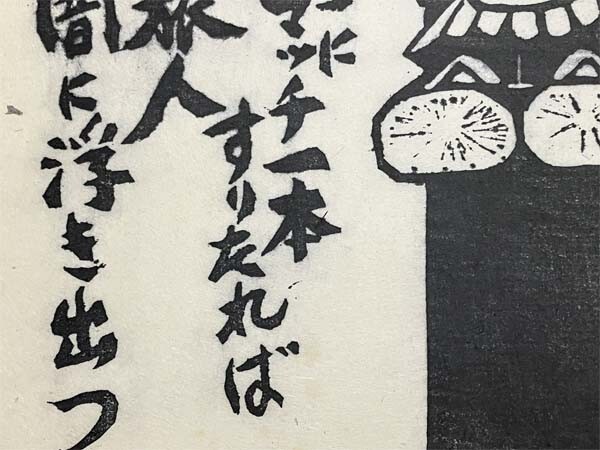 にマッチ一本
すりたれば
旅人
闇に浮き出つ